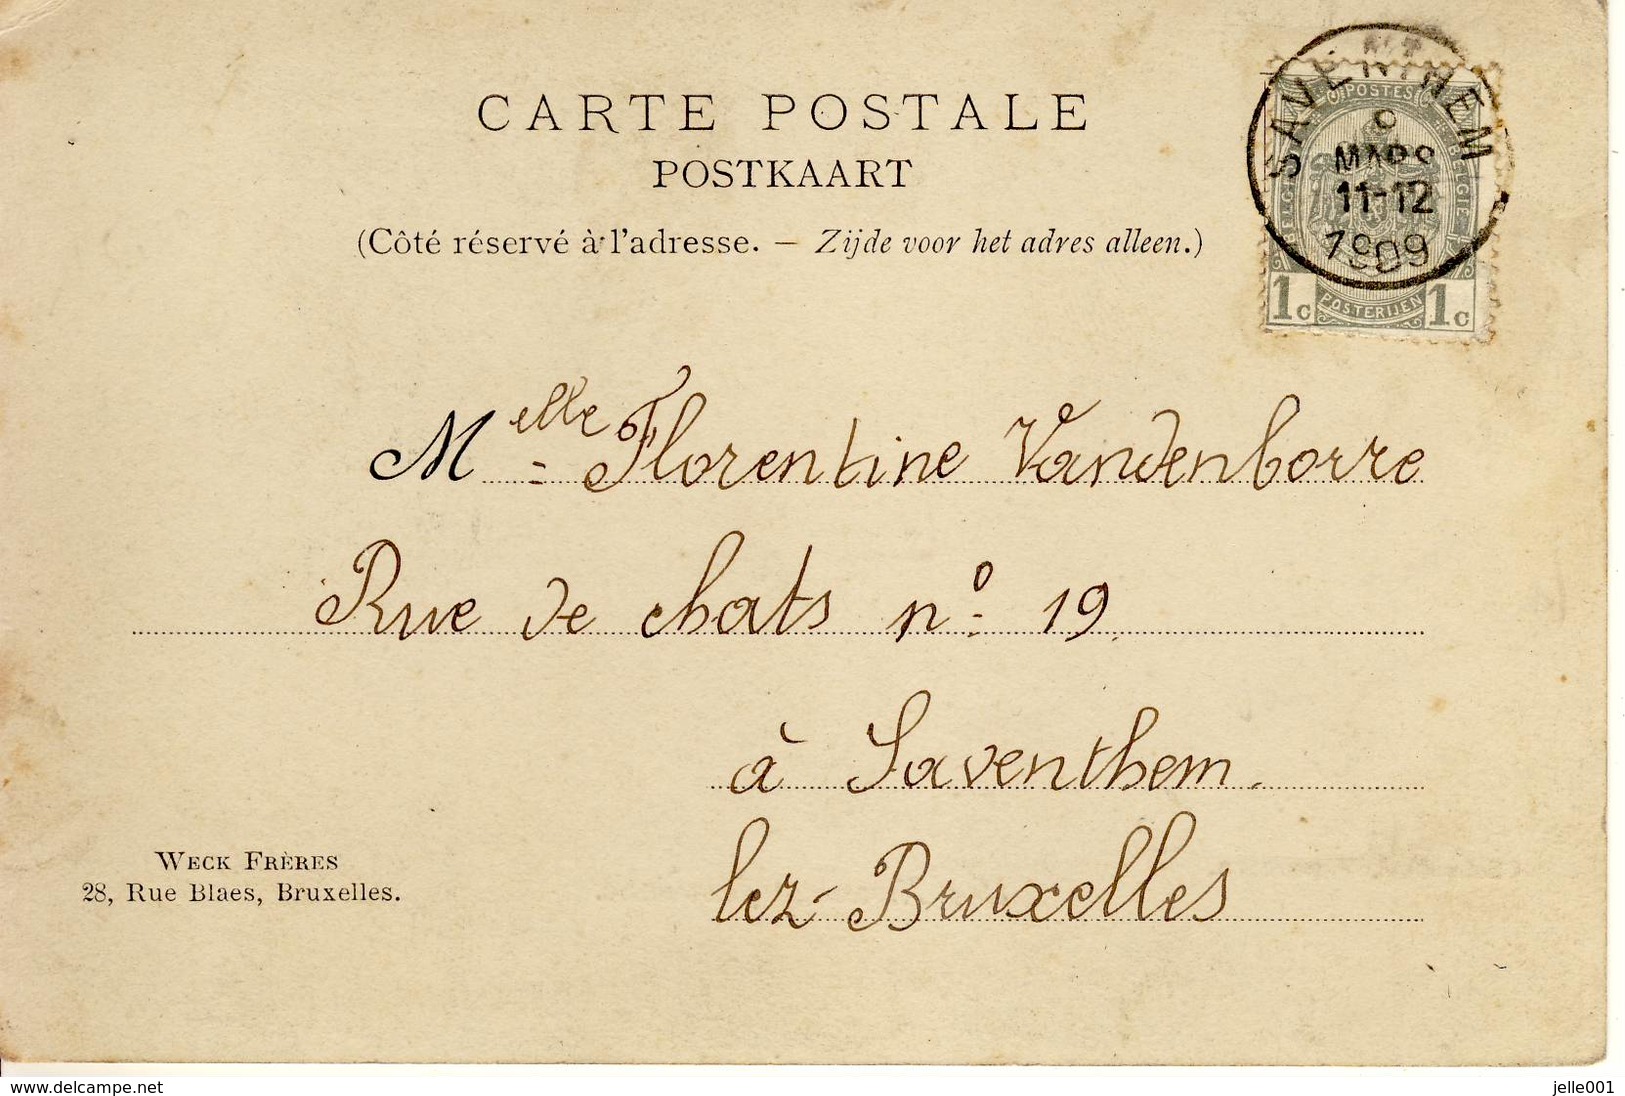 CARTE POSTALE
POSTKAART
(Côté réservé à l'adresse. — Zijde voor het adres alleen.)
SAVENTHEM
MARS
11-12
1909
POSTES
POSTERIJEN
1c 1c
Melle Florentine Vandenborre
Rue de chats no 19
à Saventhem.
lez-Bruxelles
WECK FRÈRES
28, Rue Blaes, Bruxelles.
www.delcampe.net
jelle001